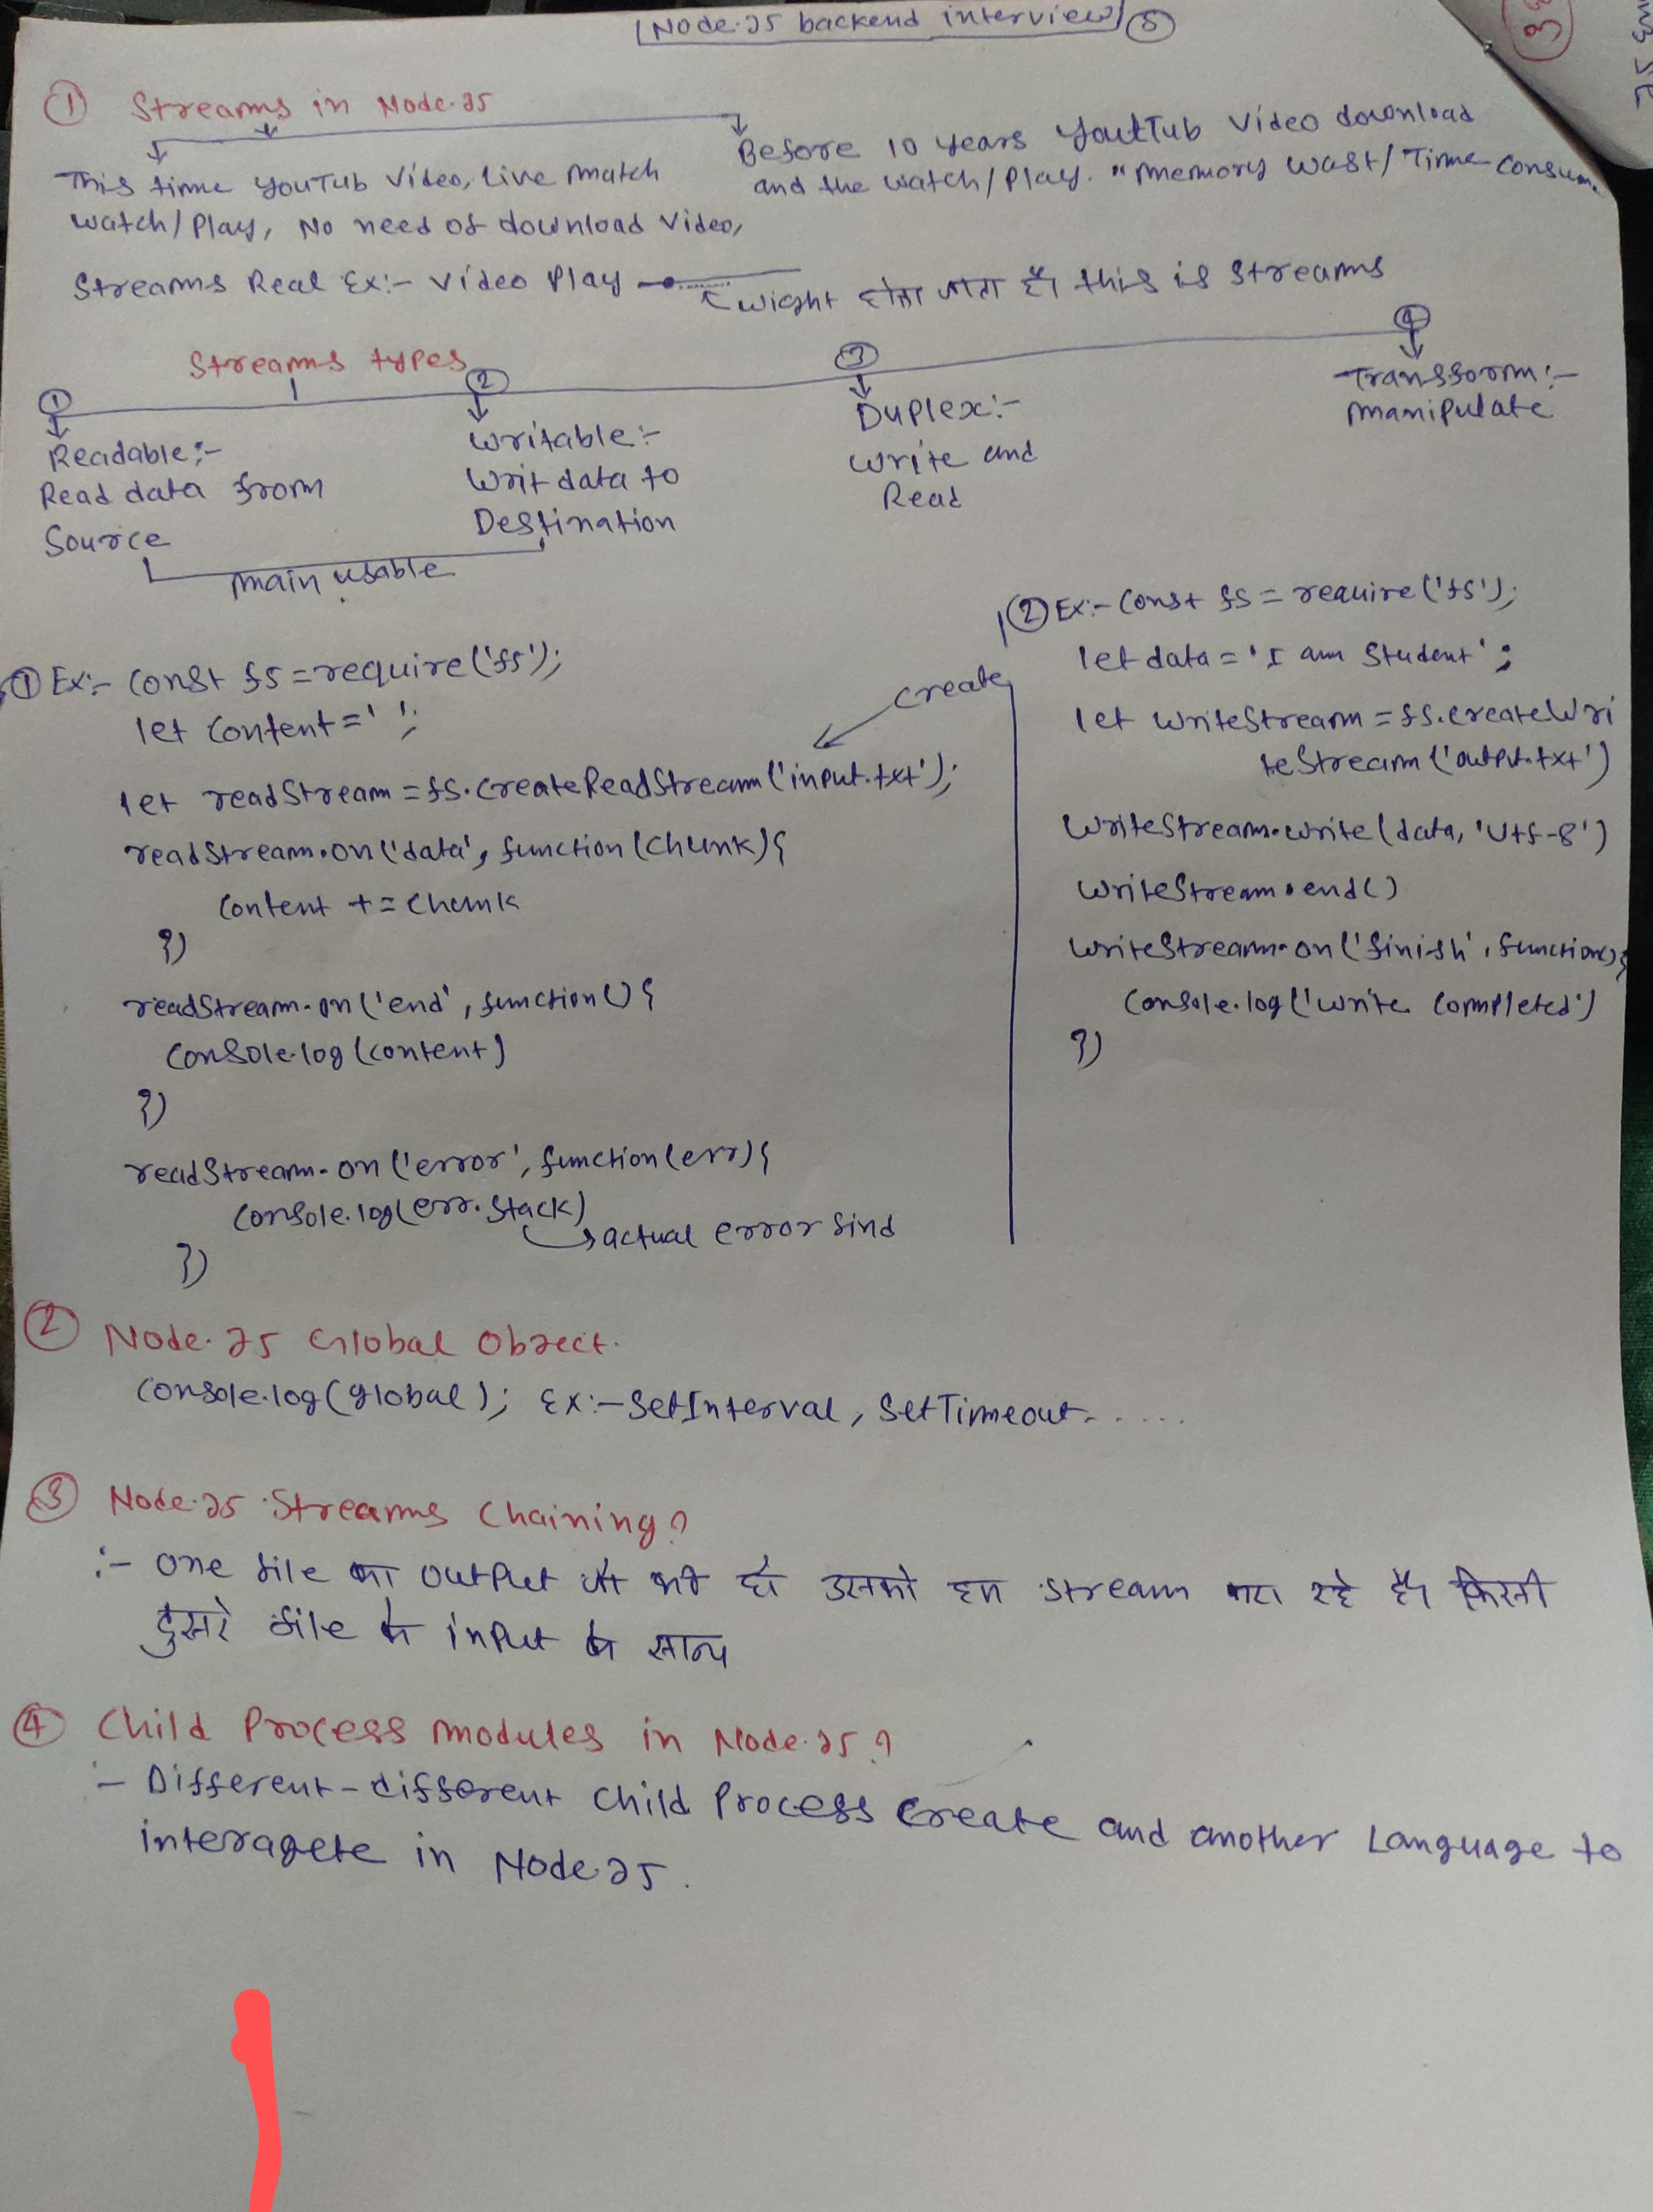 Node.js backend interview 5
① Streams in Node.js
This time YouTub Video, Live match
watch/Play, No need of download Video,
Before 10 years YoutTub Video download
and the watch/Play. "memory wast/Time consum
Streams Real Ex:- Video Play
wight होता जाता है। this is streams
Streams types
① Readable:-
Read data from
Source
② Writable:-
Writ data to
Destination
main usable
③ Duplex:-
Write and
Read
④ Transform:-
manipulate
① Ex:- Const fs = require('fs');
let content = ' ';
create
let readStream = fs.createReadStream('input.txt');
readStream.on('data', function(chunk){
content += chunk
})
readStream.on('end', function(){
console.log(content)
})
readStream.on('error', function(err){
console.log(err.stack)
actual error find
})
② Ex:- Const fs = require('fs');
let data = 'I am Student';
let writeStream = fs.createWri
teStream('output.txt')
writeStream.write(data, 'utf-8')
writeStream.end()
writeStream.on('finish', function(){
console.log('write completed')
})
② Node.js Global Object.
console.log(global); Ex:- SetInterval, SetTimeout......
③ Node.js Streams Chaining?
:- one file का output जो भी हो उसको हम stream बना रहे है। किसी
दुसरे file के input के साथ
④ Child Process modules in Node.js?
:- Different-different child Process create and another Language to
interagete in Node.js.